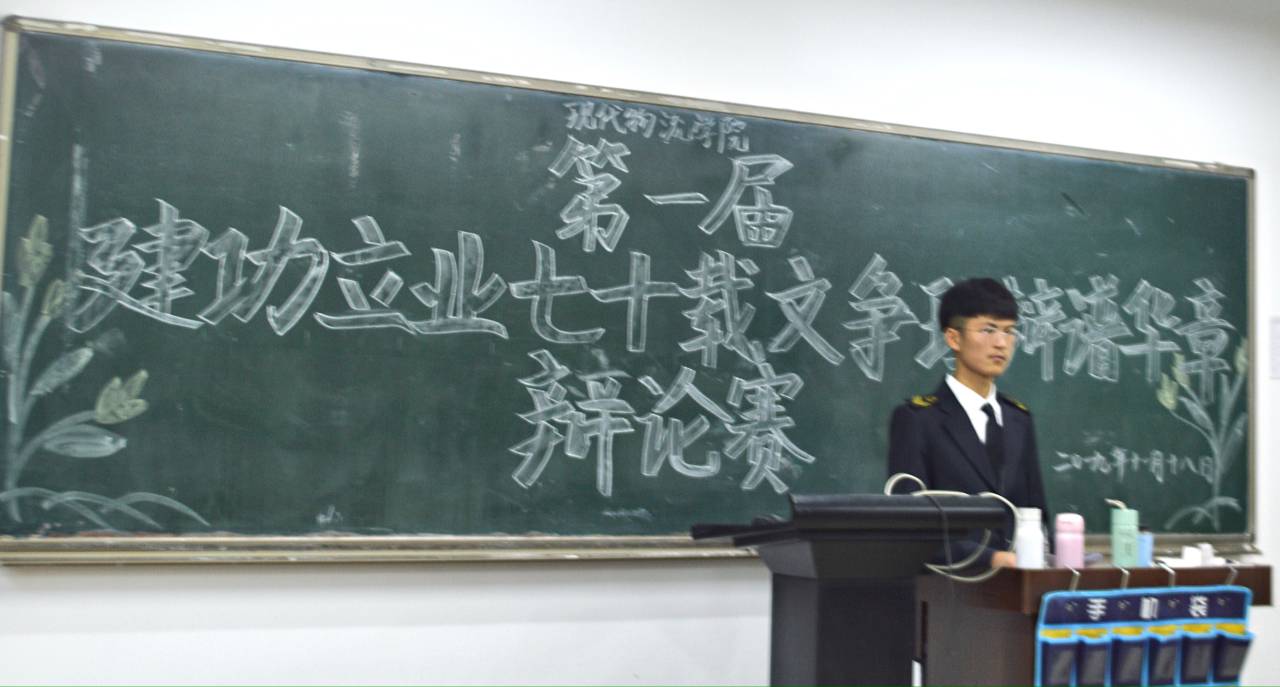 现代物流学院
第一届
建功立业七十载文争 辩谱华章
辩论赛
二〇一九年十月十八日
手机袋